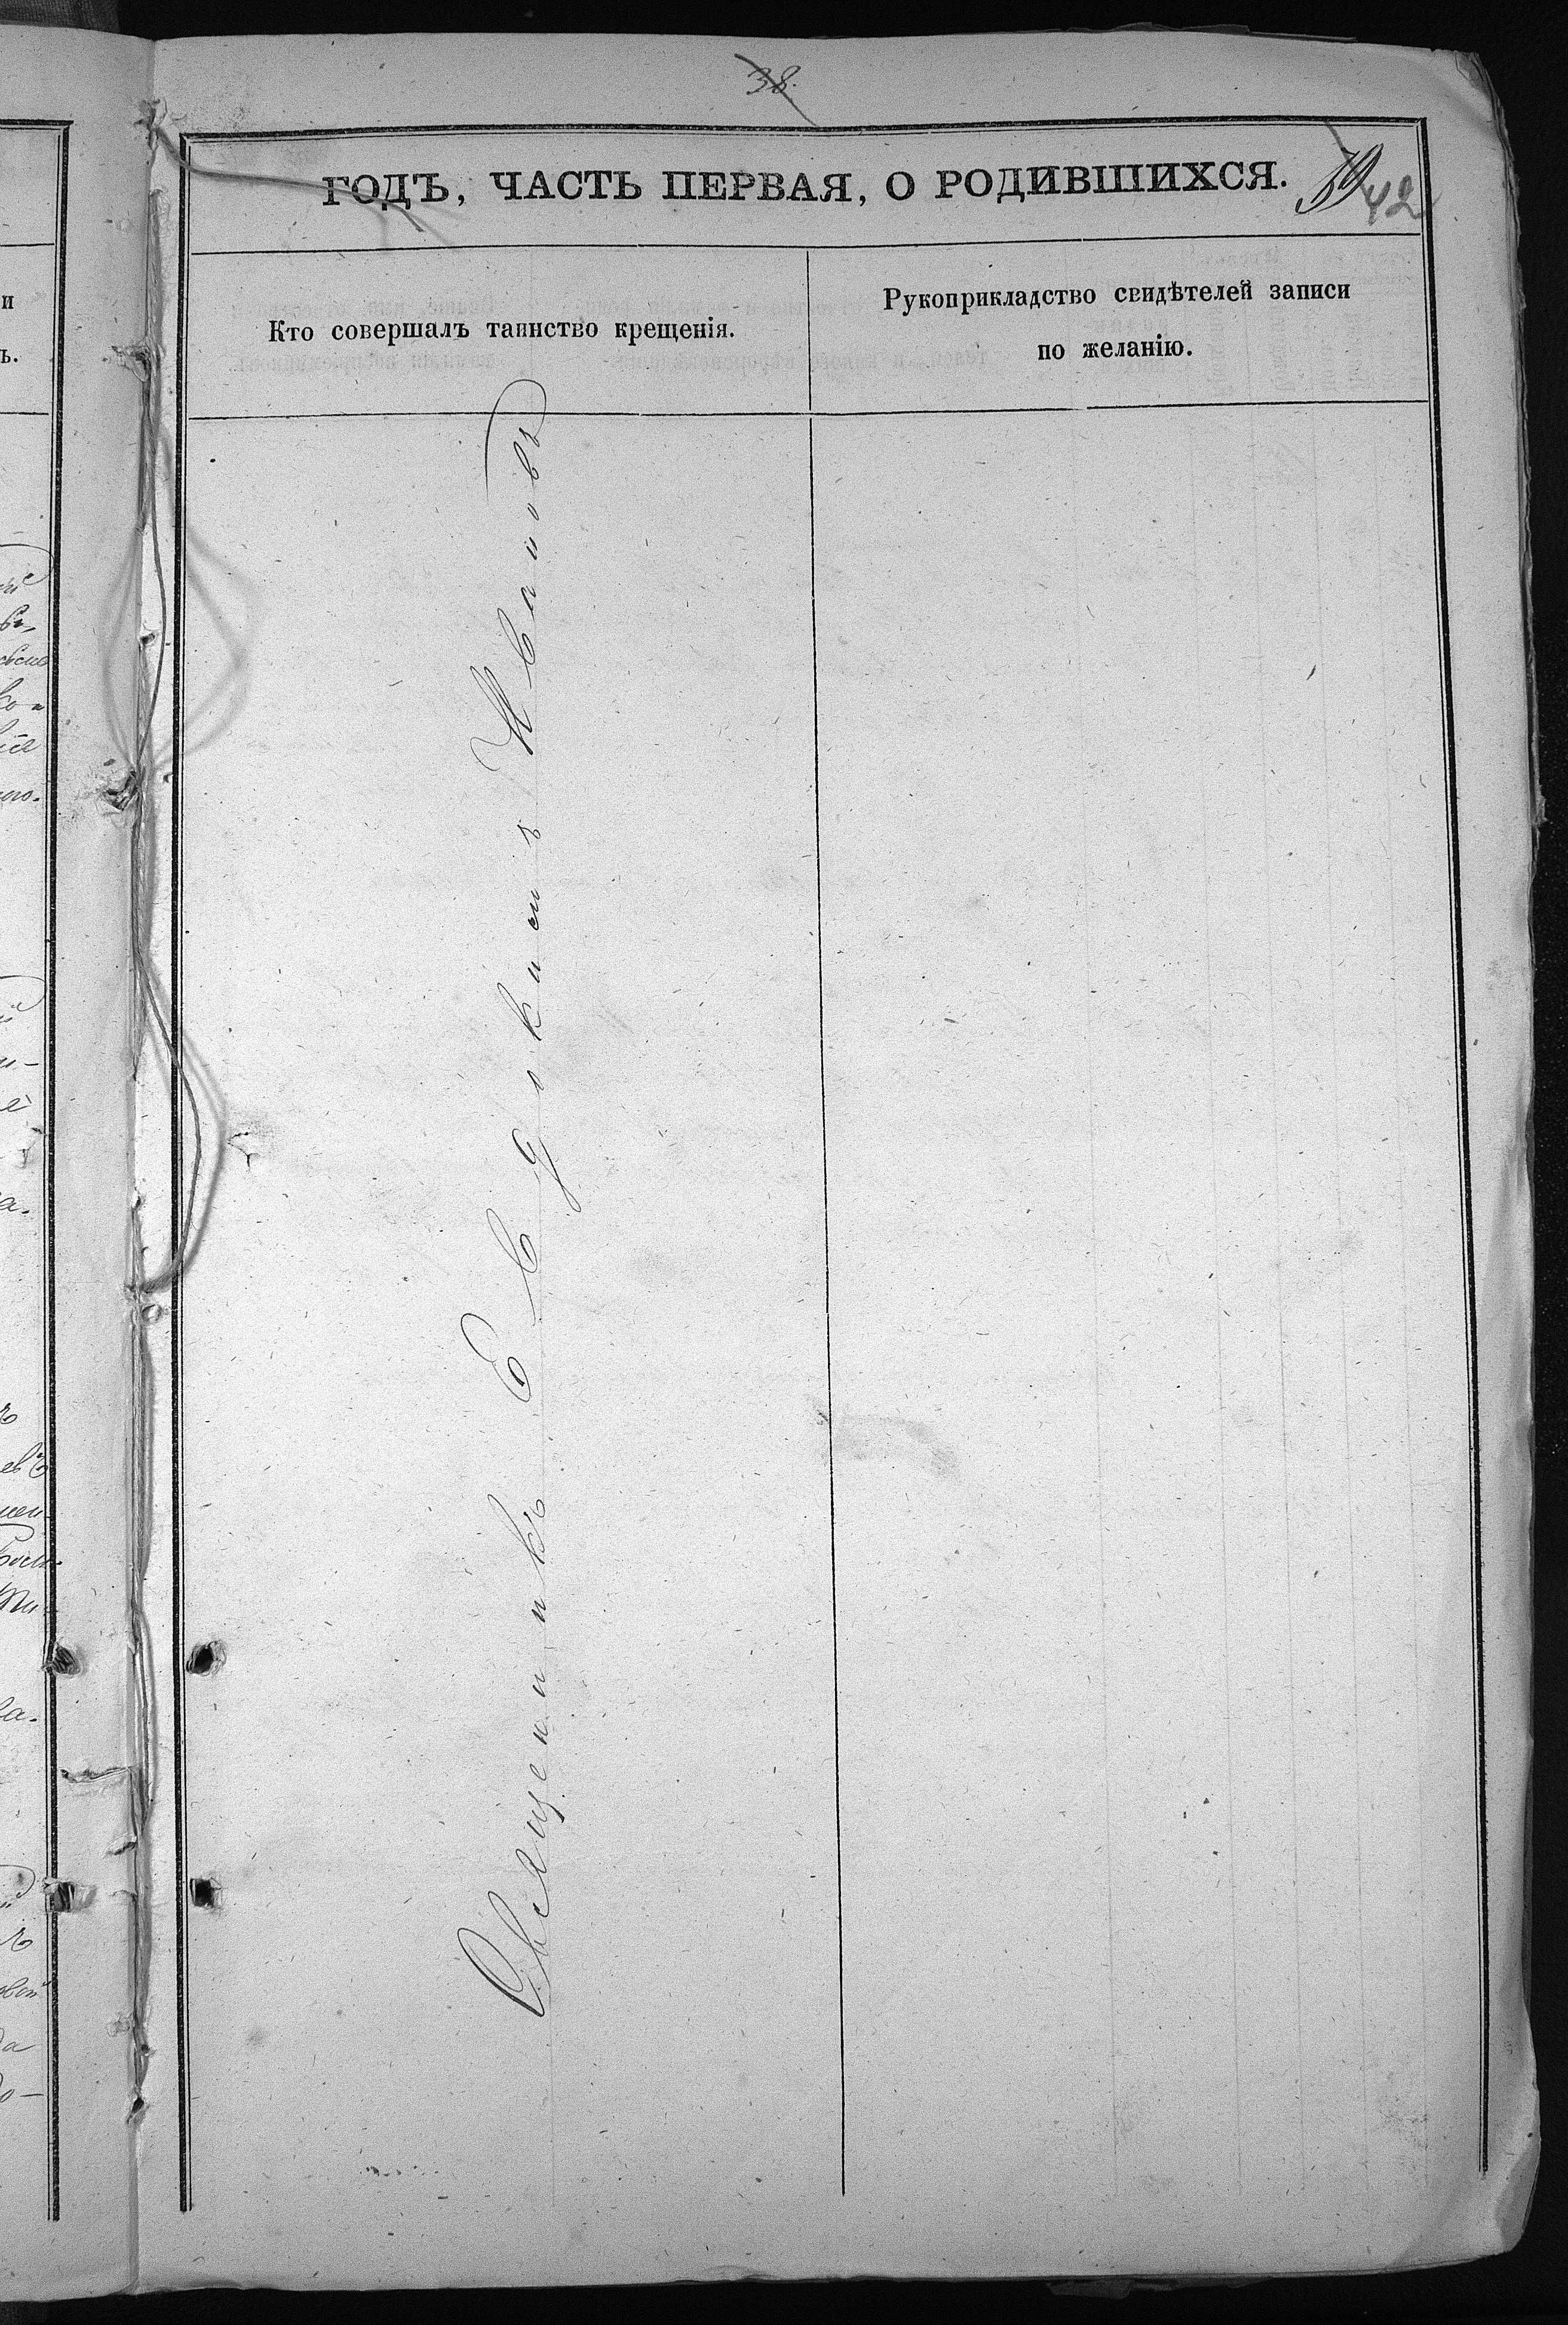 38.
ГОДЪ, ЧАСТЬ ПЕРВАЯ, О РОДИВШИХСЯ.
39
42
Кто совершалъ таинство крещенія.
Рукоприкладство свидѣтелей записи
по желанію.
Священникъ Евдокимъ Ивановъ